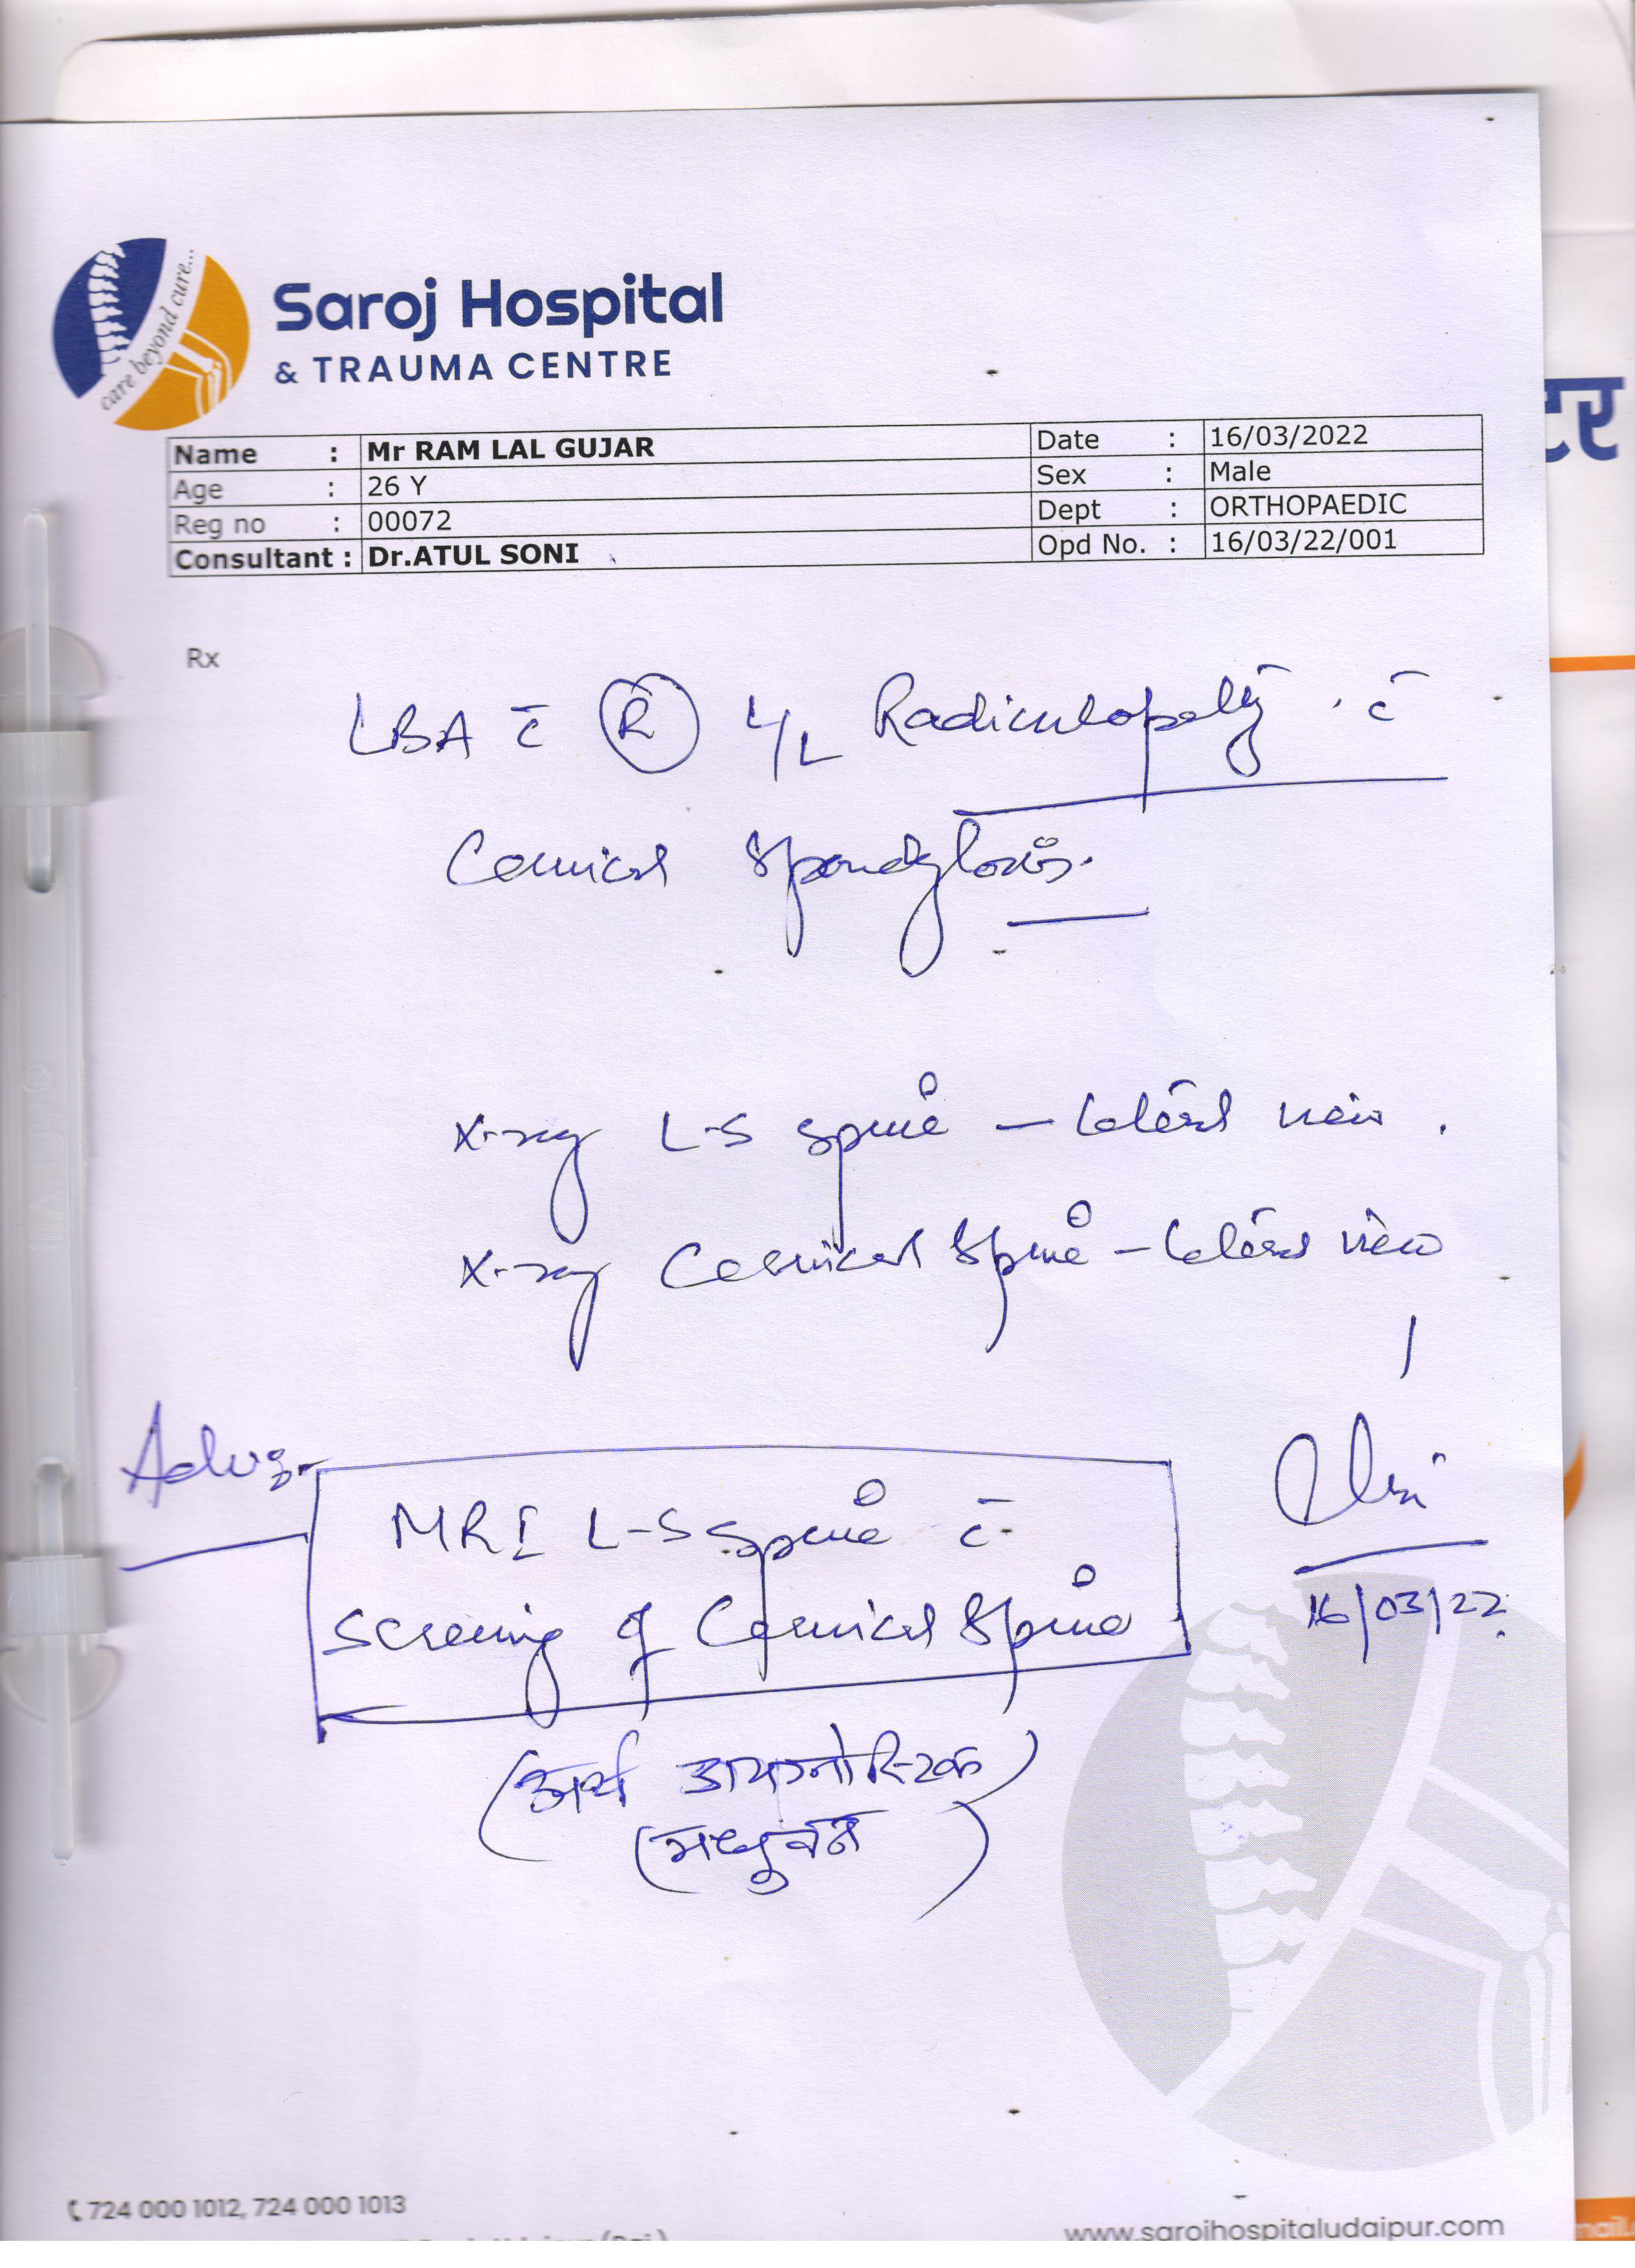 care beyond cure...
Saroj Hospital
& TRAUMA CENTRE
टर
Name : Mr RAM LAL GUJAR Date : 16/03/2022
Age : 26 Y Sex : Male
Reg no : 00072 Dept : ORTHOPAEDIC
Consultant : Dr.ATUL SONI Opd No. : 16/03/22/001
Rx
LBA c̄ Ⓡ L/L Radiculopathy . c̄
Cervical Spondylosis.
X-ray L-S spine – lateral view .
X-ray Cervical Spine – lateral view
Adv:-
MRI L-S spine c̄
screening of Cervical Spine
16/03/22
(अर्थ डायग्नोस्टिक)
(मधुवन)
724 000 1012, 724 000 1013
www.sarojhospitaludaipur.com